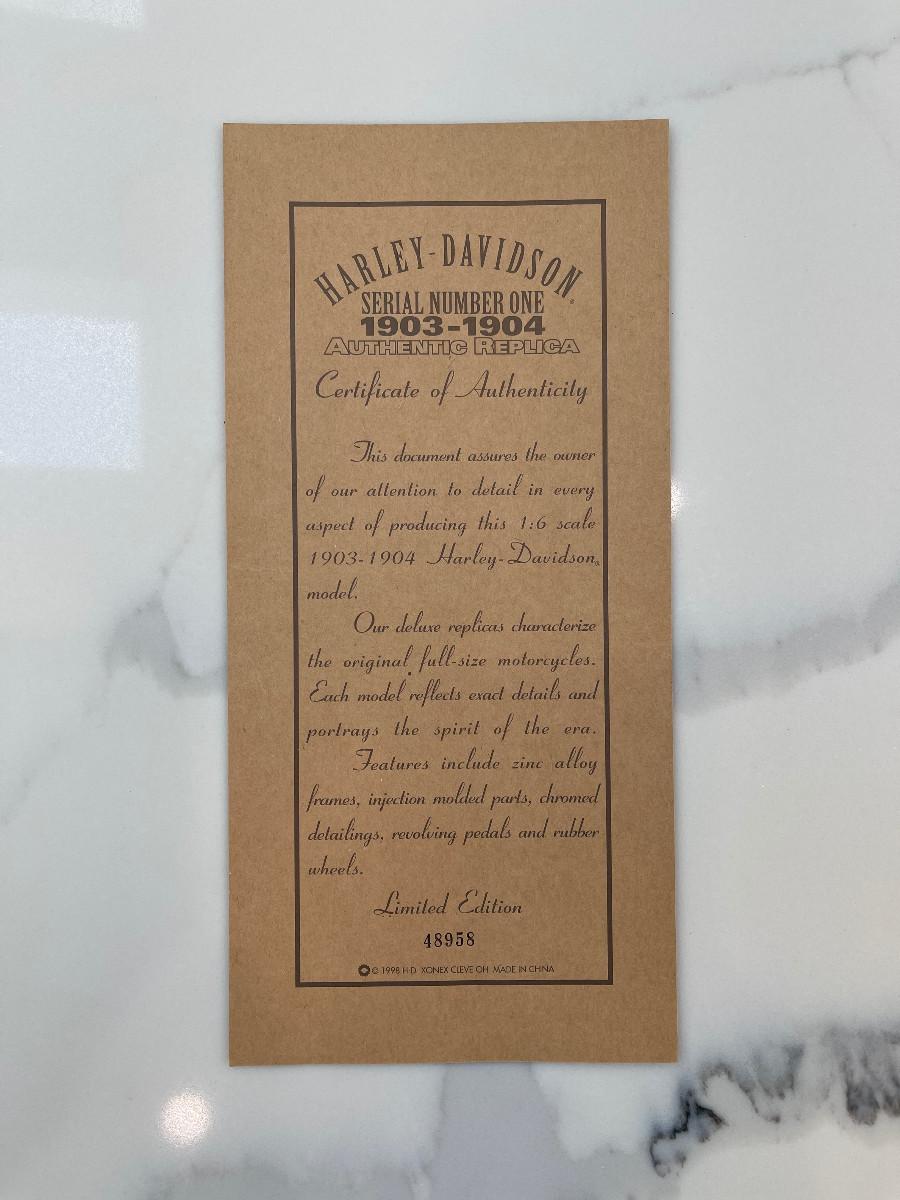 HARLEY-DAVIDSON®
SERIAL NUMBER ONE
1903-1904
AUTHENTIC REPLICA
Certificate of Authenticity
This document assures the owner
of our attention to detail in every
aspect of producing this 1:6 scale
1903-1904 Harley-Davidson®
model.
Our deluxe replicas characterize
the original full-size motorcycles.
Each model reflects exact details and
portrays the spirit of the era.
Features include zinc alloy
frames, injection molded parts, chromed
detailings, revolving pedals and rubber
wheels.
Limited Edition
48958
© 1998 H-D XONEX CLEVE OH MADE IN CHINA